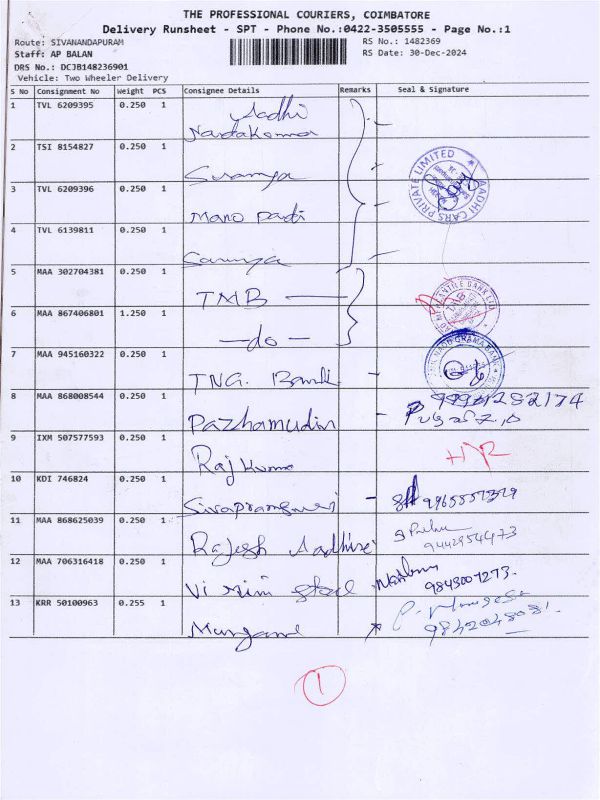 THE PROFESSIONAL COURIERS, COIMBATORE
Delivery Runsheet - SPT - Phone No.:0422-3505555 - Page No.:1
Route: SIVANANDAPURAM
RS No.: 1482369
Staff: AP BALAN
RS Date: 30-Dec-2024
DRS No.: DCJB148236901
Vehicle: Two Wheeler Delivery
S No Consignment No Weight PCS Consignee Details Remarks Seal & Signature
1 TVL 6209395 0.250 1 Aadhi
Nandakumar
2 TSI 8154827 0.250 1
Sumanya
AADHI CARS PRIVATE LIMITED
3 TVL 6209396 0.250 1
Mano
4 TVL 6139811 0.250 1
Saumya
5 MAA 302704381 0.250 1
TMB
MERCANTILE BANK LTD
6 MAA 867406801 1.250 1
-do-
7 MAA 945160322 0.250 1
TNG. Bank
GRAMA BANK
8 MAA 868008544 0.250 1
Pazhamudir
9 IXM 507577593 0.250 1
Raj Kumar
10 KDI 746824 0.250 1
11 MAA 868625039 0.250 1
Rajesh
12 MAA 706316418 0.250 1
9843007273.
13 KRR 50100963 0.255 1
Murugan
9842048081.
1